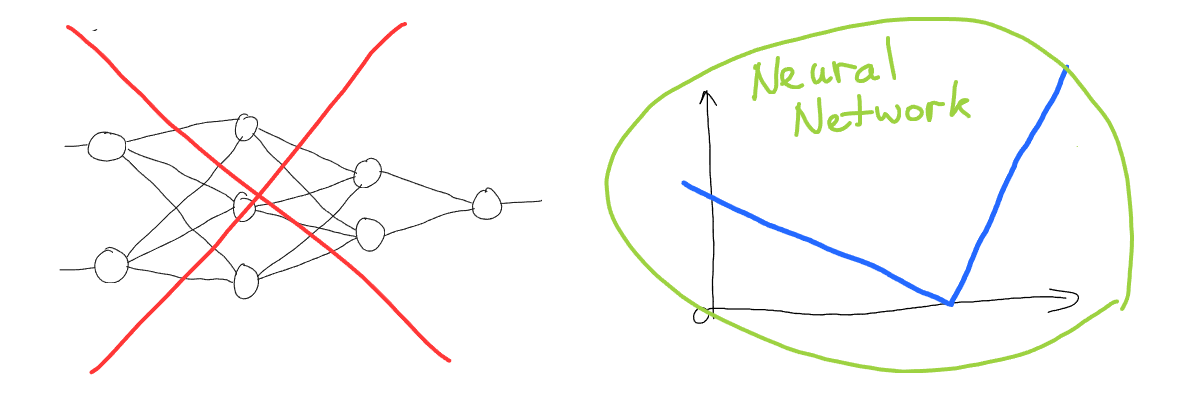 Neural
Network